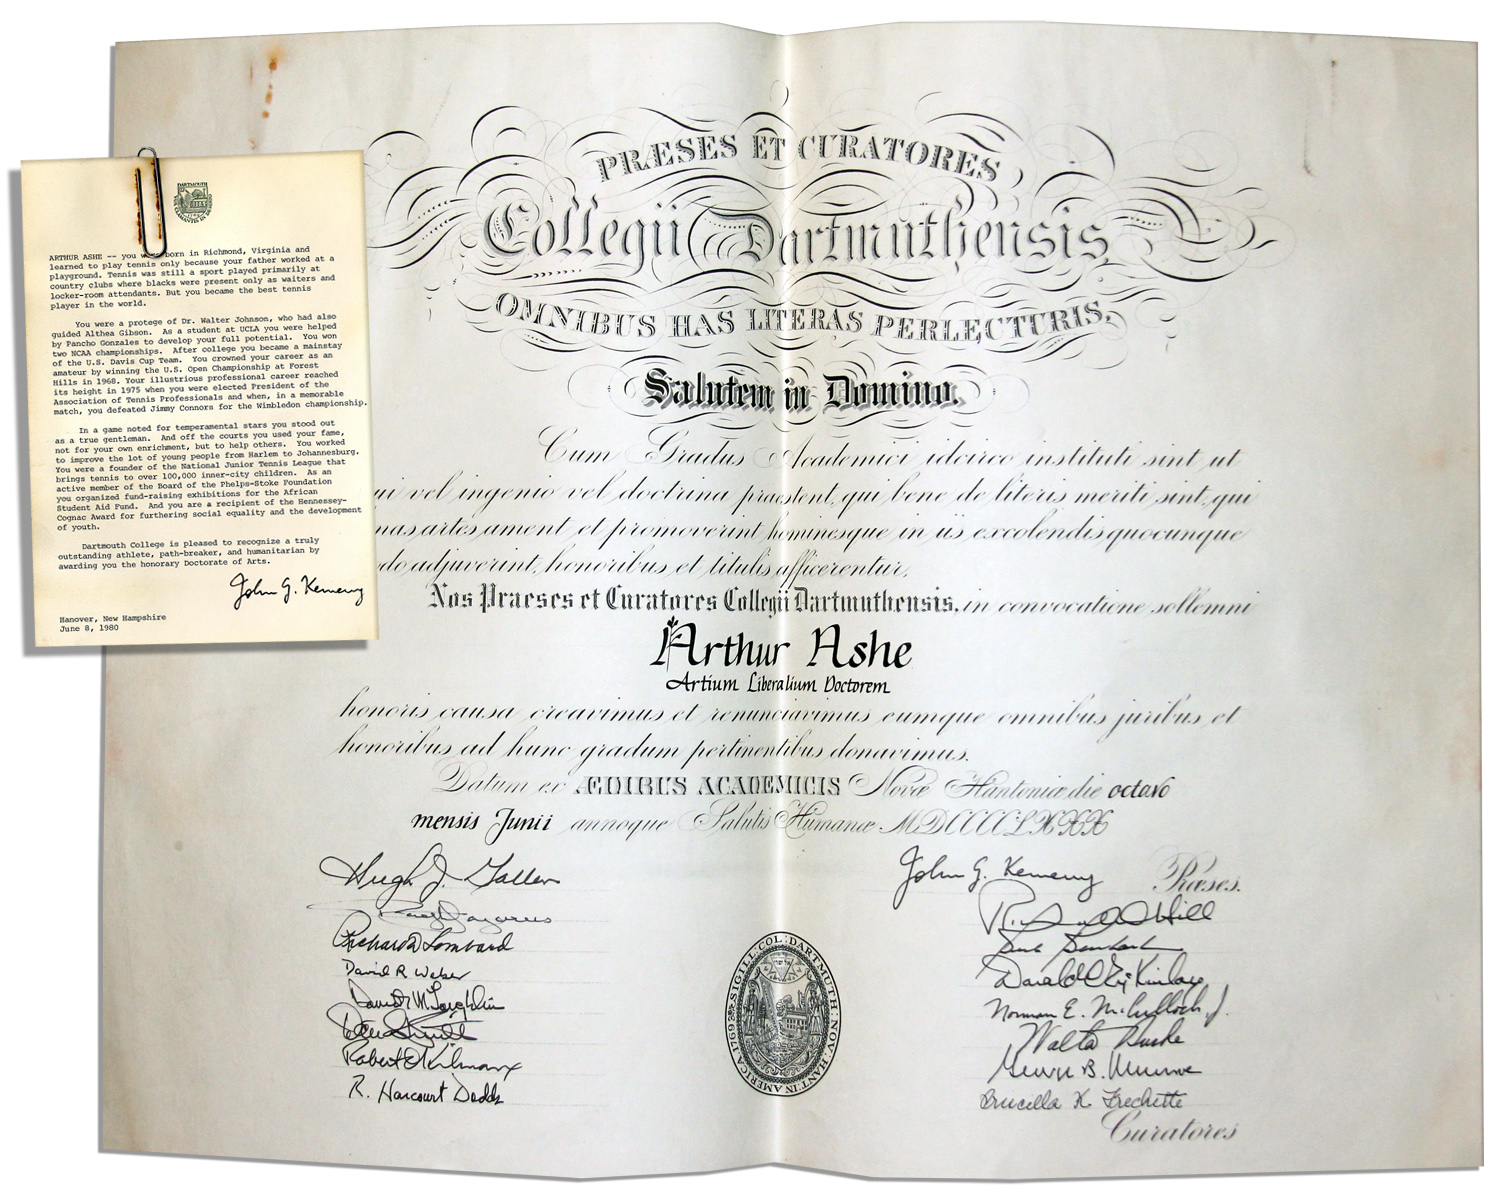 DARTMOUTH
ARTHUR ASHE -- you were born in Richmond, Virginia and
learned to play tennis only because your father worked at a
playground. Tennis was still a sport played primarily at
country clubs where blacks were present only as waiters and
locker-room attendants. But you became the best tennis
player in the world.
You were a protege of Dr. Walter Johnson, who had also
guided Althea Gibson. As a student at UCLA you were helped
by Pancho Gonzales to develop your full potential. You won
two NCAA championships. After college you became a mainstay
of the U.S. Davis Cup Team. You crowned your career as an
amateur by winning the U.S. Open Championship at Forest
Hills in 1968. Your illustrious professional career reached
its height in 1975 when you were elected President of the
Association of Tennis Professionals and when, in a memorable
match, you defeated Jimmy Connors for the Wimbledon championship.
In a game noted for temperamental stars you stood out
as a true gentleman. And off the courts you used your fame,
not for your own enrichment, but to help others. You worked
to improve the lot of young people from Harlem to Johannesburg.
You were a founder of the National Junior Tennis League that
brings tennis to over 100,000 inner-city children. As an
active member of the Board of the Phelps-Stoke Foundation
you organized fund-raising exhibitions for the African
Student Aid Fund. And you are a recipient of the Hennessey-
Cognac Award for furthering social equality and the development
of youth.
Dartmouth College is pleased to recognize a truly
outstanding athlete, path-breaker, and humanitarian by
awarding you the honorary Doctorate of Arts.
John G. Kemeny
Hanover, New Hampshire
June 8, 1980
PRÆSES ET CURATORES
Collegii Dartmuthensis
OMNIBUS HAS LITERAS PERLECTURIS,
Salutem in Domino.
Cum Gradus Academici idcirco instituti sint ut
ui vel ingenio vel doctrina praestent, qui bene de literis meriti sint, qui
nas artes ament et promoverint hominesque in iis excolendis quocunque
do adjuverint, honoribus et titulis afficerentur,
Nos Praeses et Curatores Collegii Dartmuthensis, in convocatione sollemni
Arthur Ashe
Artium Liberalium Doctorem
honoris causa creavimus et renunciavimus eumque omnibus juribus et
honoribus ad hunc gradum pertinentibus donavimus.
Datum ex ÆDIBUS ACADEMICIS Novæ Hantoniæ die octavo
mensis Junii annoque Salutis Humanæ MDCCCCLXXX
Hugh J. Gallen
Richard D Lombard
David R Weber
David T. McLaughlin
Robert O Kilmarx
R. Harcourt Dodds
John G. Kemeny Præses.
Richard D Hill
Norman E. McCulloch, Jr.
Walter Burke
Priscilla K Frechette
Curatores
SIGILL: COL: DARTMUTH: NOV: HANT: IN AMERICA 1769